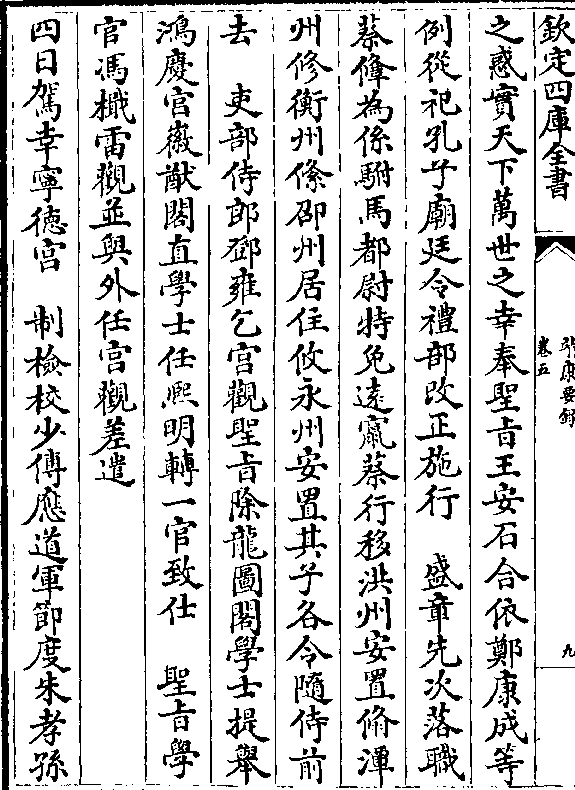 欽定四庫全書
靖康要錄
卷五
九
之惑實天下萬世之幸奉聖旨王安石合依鄭康成等
例從祀孔子廟廷令禮部改正施行　盛章先次落職
蔡鞗為係駙馬都尉特免遠竄蔡行移洪州安置脩渾
州修衡州絛邵州居住攸永州安置其子各令隨侍前
去　吏部侍郎鄧雍乞宮觀聖旨除龍圖閣學士提舉
鴻慶宮徽猷閣直學士任熙明轉一官致仕　聖旨學
官馮檝雷觀並與外任宮觀差遣
四日駕幸寧德宮　制檢校少傅應道軍節度朱孝孫